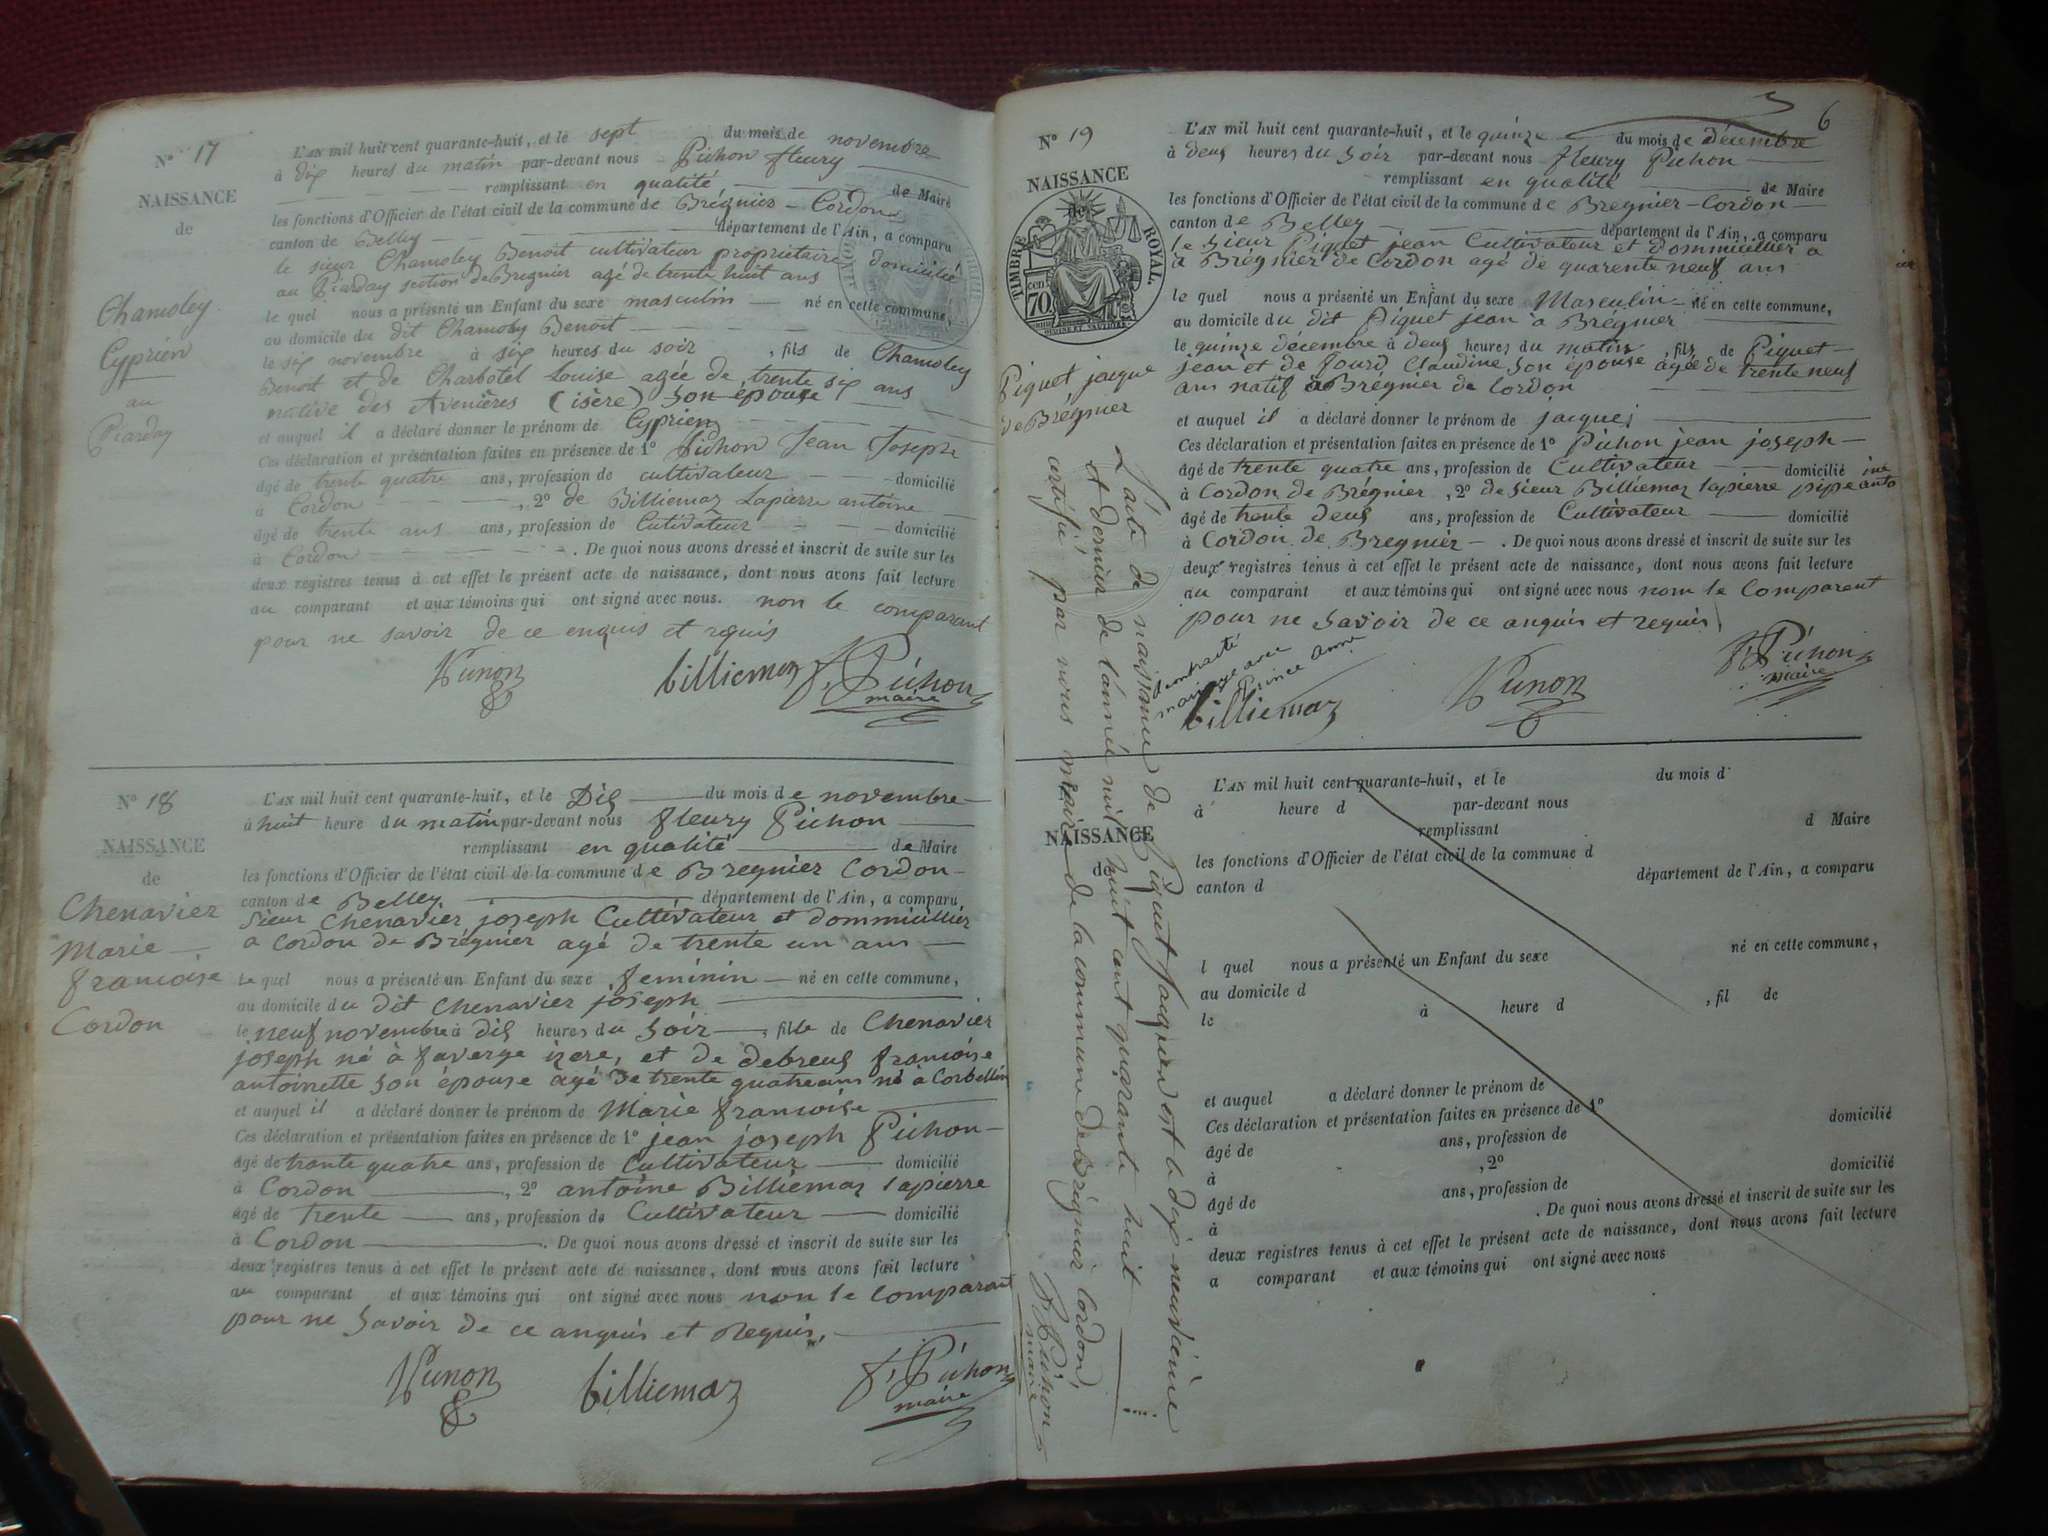 N° 17
NAISSANCE
de
Chamoley
Cyprien
au
Piarday
L'AN mil huit cent quarante-huit, et le sept du mois de novembre
à dix heures du matin par-devant nous Pichon fleury
remplissant en qualité de Maire
les fonctions d'Officier de l'état civil de la commune de Brégnier-Cordon
canton de Belley département de l'Ain, a comparu
le sieur Chamoley Benoit cultivateur propriétaire domicilié
au Piarday section de Bregnier agé de trente huit ans
le quel nous a présenté un Enfant du sexe masculin né en cette commune,
au domicile du dit Chamoley Benoit
le six novembre à six heures du soir, fils de Chamoley
Benoit et de Charbotel Louise agée de trente six ans
native des Avenières (isère) son épouse
et auquel il a déclaré donner le prénom de Cyprien
Ces déclaration et présentation faites en présence de 1° Pichon Jean Joseph
âgé de trente quatre ans, profession de cultivateur domicilié
à Cordon, 2° de Billiemaz Lapierre antoine
âgé de trente ans ans, profession de Cultivateur domicilié
à Cordon. De quoi nous avons dressé et inscrit de suite sur les
deux registres tenus à cet effet le présent acte de naissance, dont nous avons fait lecture
au comparant et aux témoins qui ont signé avec nous. non le comparant
pour ne savoir de ce enquis et requis
billiemaz f. Pichon
maire
N° 18
NAISSANCE
de
Chenavier
Marie
francoise
Cordon
L'AN mil huit cent quarante-huit, et le Dix du mois de novembre
à huit heure du matin par-devant nous fleury Pichon
remplissant en qualité de Maire
les fonctions d'Officier de l'état civil de la commune de Bregnier Cordon
canton de Belley département de l'Ain, a comparu
Sieur Chenavier joseph Cultivateur et dommicillier
a Cordon de Brégnier agé de trente un ans
le quel nous a présenté un Enfant du sexe feminin né en cette commune,
au domicile du dit Chenavier joseph
le neuf novembre à dix heures du Soir, fille de Chenavier
joseph né à faverge izere, et de debreux francoise
antoinette son épouse agé de trente quatre ans né à Corbellin
et auquel il a déclaré donner le prénom de Marie francoise
Ces déclaration et présentation faites en présence de 1° jean joseph Pichon
âgé de trante quatre ans, profession de Cultivateur domicilié
à Cordon, 2° antoine Billiemaz lapierre
âgé de trente ans, profession de Cultivateur domicilié
à Cordon. De quoi nous avons dressé et inscrit de suite sur les
deux registres tenus à cet effet le présent acte de naissance, dont nous avons fait lecture
au comparant et aux témoins qui ont signé avec nous non le comparant
pour ne Savoir de ce anquis et Requis,
billiemaz f. Pichon
maire
6
N° 19
NAISSANCE
de
TIMBRE ROYAL
cent 70
Piguet jacque
de Bregnier
L'AN mil huit cent quarante-huit, et le quinze du mois de décembre
à deux heures du Soir par-devant nous fleury Pichon
remplissant en qualité de Maire
les fonctions d'Officier de l'état civil de la commune de Bregnier-Cordon
canton de Belley département de l'Ain, a comparu
le Sieur Piguet jean Cultivateur et dommicillier a
a Brégnier de Cordon agé de quarente neuf ans
le quel nous a présenté un Enfant du sexe Masculin né en cette commune,
au domicile du dit Piguet jean à Brégnier
le quinze décembre à deux heures du matin, fils de Piguet
jean et de Jourd Claudine Son épouse agée de trente neuf
ans natif a Bregnier de Cordon
et auquel il a déclaré donner le prénom de jacques
Ces déclaration et présentation faites en présence de 1° Pichon jean joseph
âgé de trente quatre ans, profession de Cultivateur domicilié
à Cordon de Brégnier, 2° de Sieur Billiemaz lapierre
âgé de trente deux ans, profession de Cultivateur domicilié
à Cordon de Bregnier. De quoi nous avons dressé et inscrit de suite sur les
deux registres tenus à cet effet le présent acte de naissance, dont nous avons fait lecture
au comparant et aux témoins qui ont signé avec nous nom le Comparent
pour ne Savoir de ce anquis et requis
mariage avec
billiemaz
f. Pichon
maire
L'acte de naissance de Piguet Jacques est le dix neuvième
et dernier de l'année mil huit cent quarante huit
certifié par nous maire de la commune de Brégnier Cordon,
f. Pichon
maire
NAISSANCE
de
L'AN mil huit cent quarante-huit, et le du mois d
à heure d par-devant nous
remplissant d Maire
les fonctions d'Officier de l'état civil de la commune d
canton d département de l'Ain, a comparu
l quel nous a présenté un Enfant du sexe né en cette commune,
au domicile d
le à heure d , fil de
et auquel a déclaré donner le prénom de
Ces déclaration et présentation faites en présence de 1°
âgé de ans, profession de domicilié
à , 2°
âgé de ans, profession de domicilié
à . De quoi nous avons dressé et inscrit de suite sur les
deux registres tenus à cet effet le présent acte de naissance, dont nous avons fait lecture
a comparant et aux témoins qui ont signé avec nous